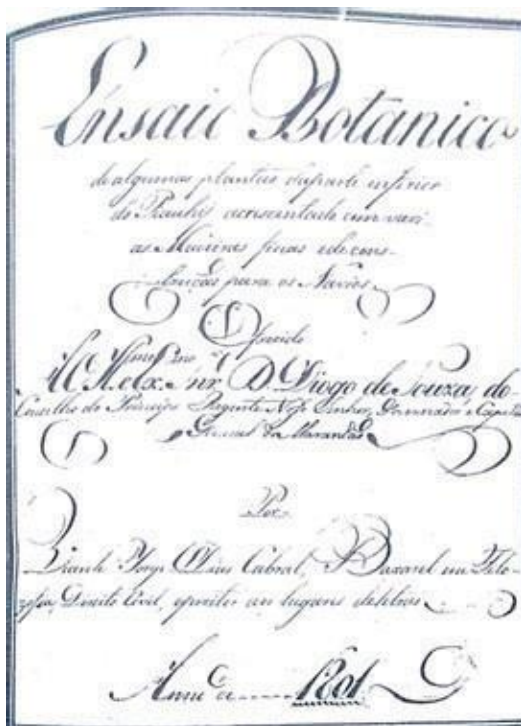 Ensaio Botanico
de algumas plantas da parte inferior
do Piauhy acresentado com vari-
as Madeiras finas e de cons-
truções para os Navios
Oferecido
Snr. D. Diogo de Souza, do
Conselho do Principe Regente Nosso Senhor, Governador e Capitão
General do Maranhão
Por
Vicente Jorge Dias Cabral, Baxarel em Filo-
zofia, Direito Civil, opozitor aos lugares de letras
Anno de 1801